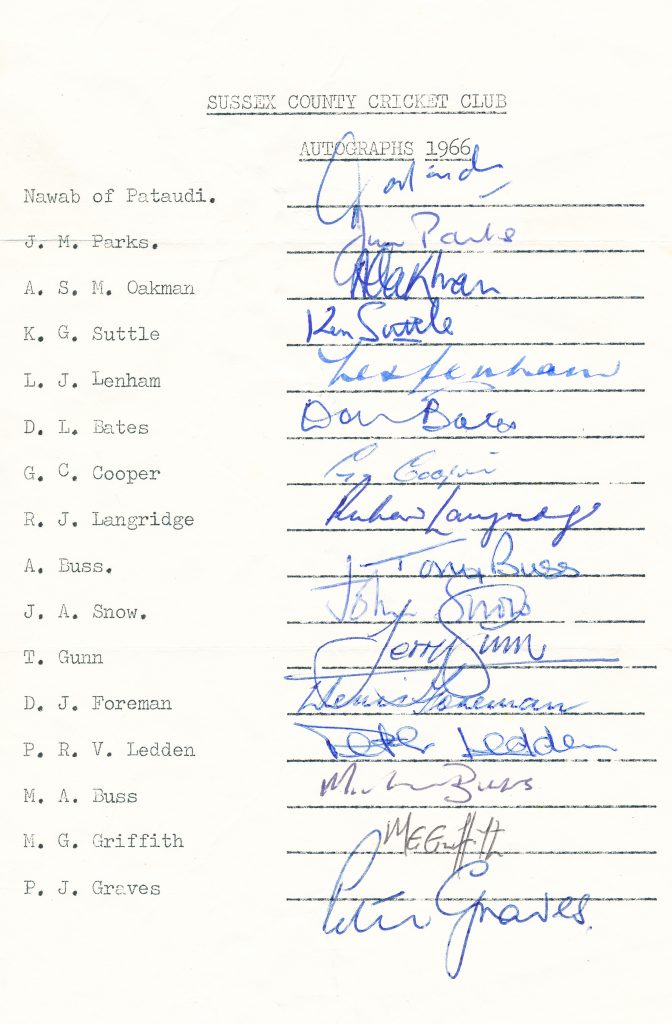 SUSSEX COUNTY CRICKET CLUB
AUTOGRAPHS 1966
Nawab of Pataudi.
J. M. Parks. Jim Parks
A. S. M. Oakman ASOakman
K. G. Suttle Ken Suttle
L. J. Lenham Les Lenham
D. L. Bates Don Bates
G. C. Cooper Cooper
R. J. Langridge Richard Langridge
A. Buss. Tony Buss
J. A. Snow. John Snow
T. Gunn Terry Gunn
D. J. Foreman Denis Foreman
P. R. V. Ledden Peter Ledden
M. A. Buss Buss
M. G. Griffith MGGriffith
P. J. Graves Peter Graves.